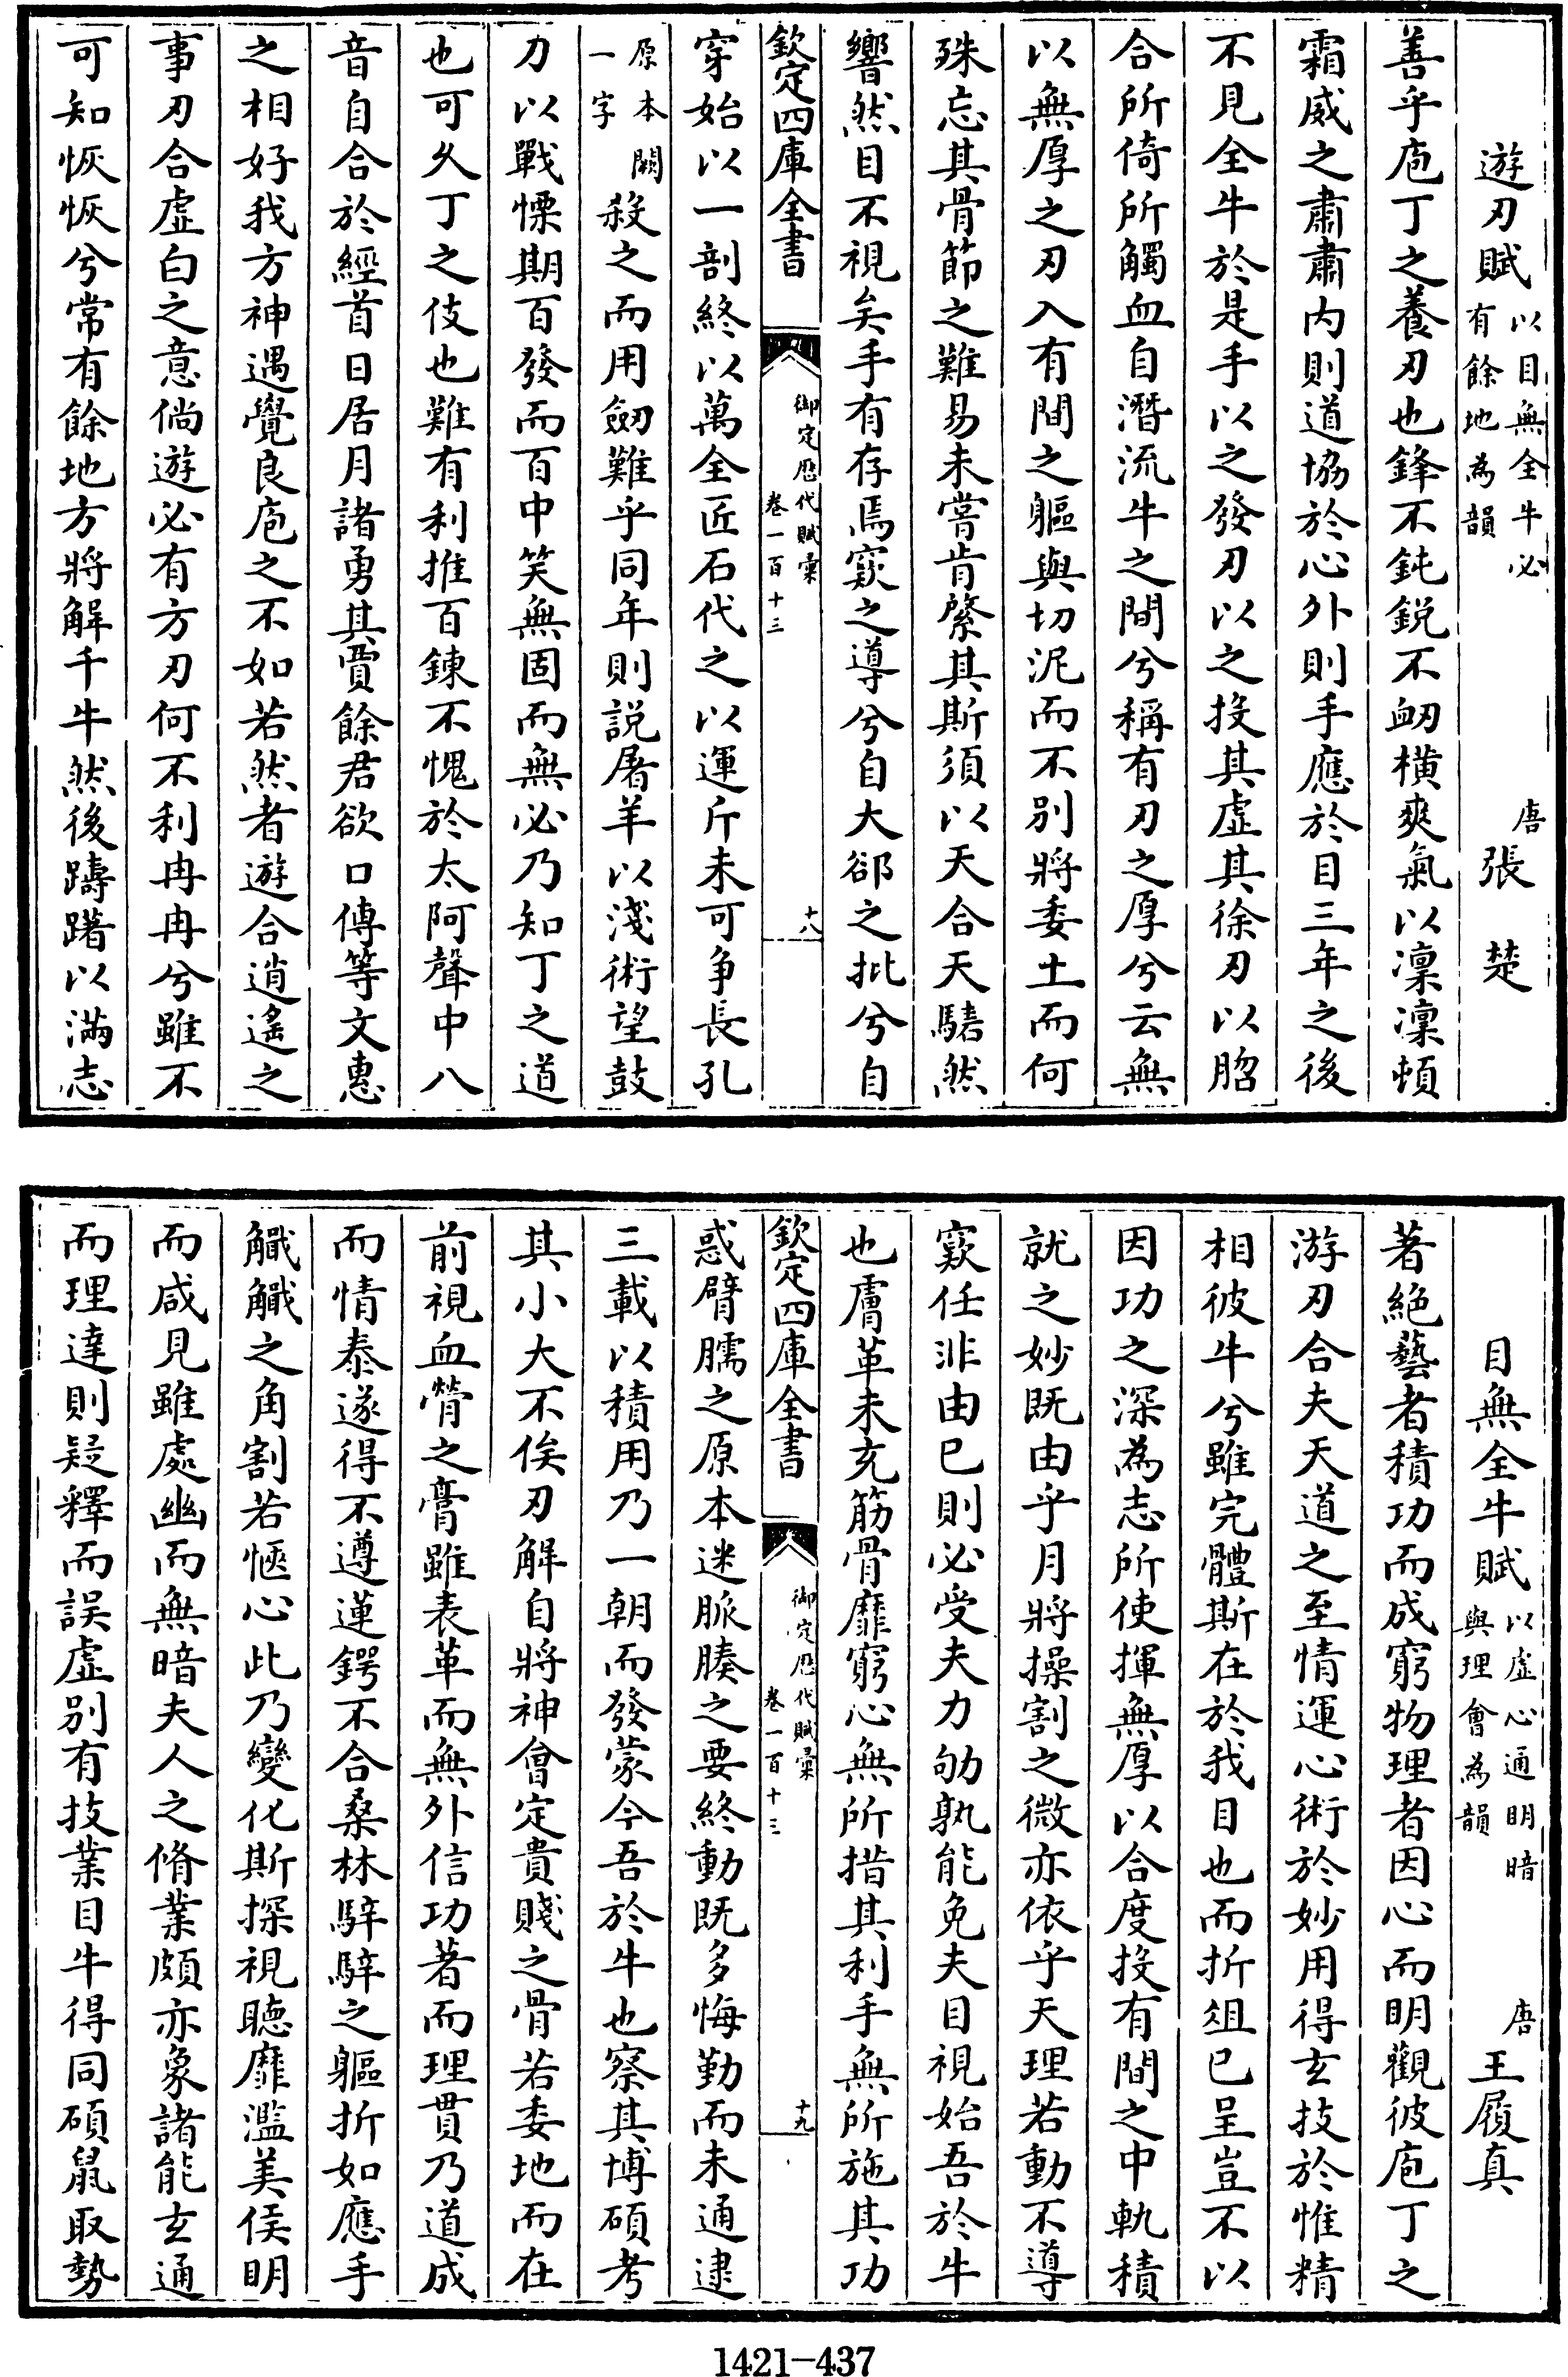 遊刃賦以目無全牛必有餘地為韻 唐張楚
善乎庖丁之養刃也鋒不鈍鋭不衂横爽氣以凛凛頓
霜威之肅肅内則道協於心外則手應於目三年之後
不見全牛於是手以之發刃以之投其虚其徐刃以䏚
合所倚所觸血自潛流牛之間兮稱有刃之厚兮云無
以無厚之刃入有間之軀與切泥而不别將委土而何
殊忘其骨節之難易未嘗肯綮其斯須以天合天騞然
響然目不視矣手有存焉窾之導兮自大郤之批兮自
欽定四庫全書 御定厯代賦彚 卷一百十三 十八
穿始以一剖終以萬全匠石代之以運斤未可争長孔
原本闕一字殺之而用劒難乎同年則説屠羊以淺術望鼓
刀以戰慄期百發而百中笑無固而無必乃知丁之道
也可久丁之伎也難有利推百鍊不愧於太阿聲中八
音自合於經首日居月諸勇其賈餘君欲口傳等文惠
之相好我方神遇覺良庖之不如若然者遊合逍遥之
事刃合虚白之意倘遊必有方刃何不利冉冉兮雖不
可知恢恢兮常有餘地方將解千牛然後躊躇以滿志
目無全牛賦以虚心通明暗與理會為韻 唐王履真
著絶藝者積功而成窮物理者因心而明觀彼庖丁之
游刃合夫天道之至情運心術於妙用得玄技於惟精
相彼牛兮雖完體斯在於我目也而折俎已呈豈不以
因功之深為志所使揮無厚以合度投有間之中軌積
就之妙既由乎月將操割之微亦依乎天理若動不導
窾任非由已則必受夫力劬孰能免夫目視始吾於牛
也膚革未充筋骨靡窮心無所措其利手無所施其功
欽定四庫全書 御定厯代賦彚 卷一百十三 十九
惑臂臑之原本迷脈腠之要終動既多悔勤而未通逮
三載以積用乃一朝而發蒙今吾於牛也察其博碩考
其小大不俟刃解自將神會定貴賤之骨若委地而在
前視血膋之膏雖表革而無外信功著而理貫乃道成
而情泰遂得不遵蓮鍔不合桑林騂騂之軀折如應手
觸觸之角割若愜心此乃變化斯探視聽靡濫美侯明
而咸見雖處幽而無暗夫人之脩業頗亦象諸能玄通
而理達則疑釋而誤虚别有技業目牛得同碩鼠取勢
1421-437